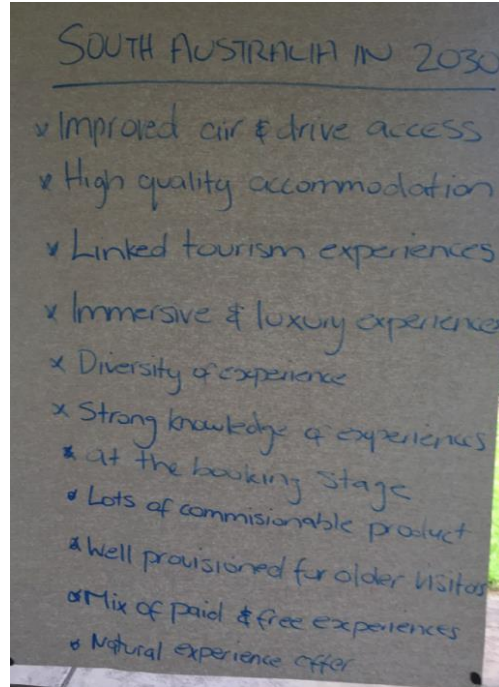 SOUTH AUSTRALIA IN 2030
x Improved air & drive access
x High quality accommodation
x Linked tourism experiences
x Immersive & luxury experiences
x Diversity of experience
x Strong knowledge of experiences
x at the booking stage
x Lots of commisionable product
x Well provisioned for older visitors
x Mix of paid & free experiences
x Natural experience offer